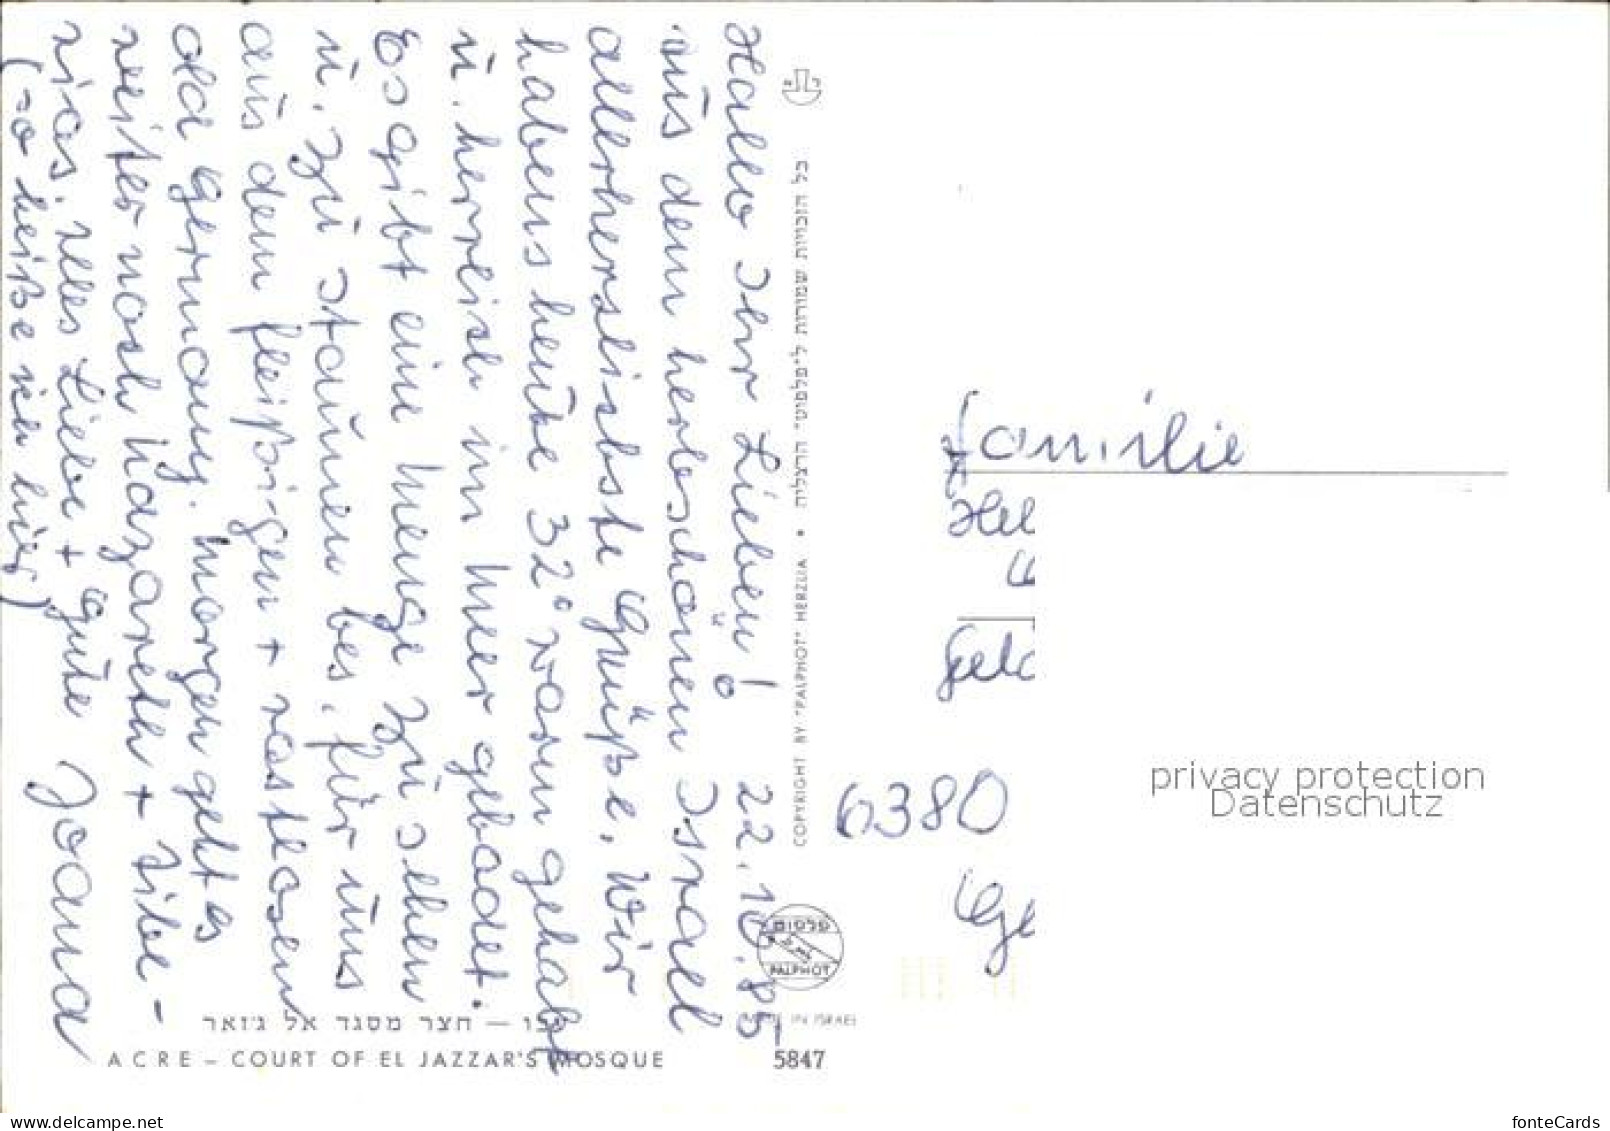 Hallo Ihr Lieben! 22.10.85
aus dem herbschönen Israel
allerherzlichste Grüße. Wir
habens heute 32° warm gehabt
u. herrlich im Meer gebadet.
Es gibt eine Menge zu sehen
u. zu staunen bes. für uns
aus dem fleißigen + rastlosen
old Germany. Morgen geht es
weiter nach Nazareth + Tibe-
rias. Alles Liebe + Gute Joana
(so heiße ich hier)
כל הזכויות שמורות ל״פלפוט״ הרצליה • COPYRIGHT BY "PALPHOT" HERZLIA
פלפוט
PALPHOT
MADE IN ISRAEL
עכו — חצר מסגד אל ג׳זאר
ACRE – COURT OF EL JAZZAR'S MOSQUE
5847
Familie
Hel
Geld
6380
Ge
privacy protection
Datenschutz
www.delcampe.net
fonteCards